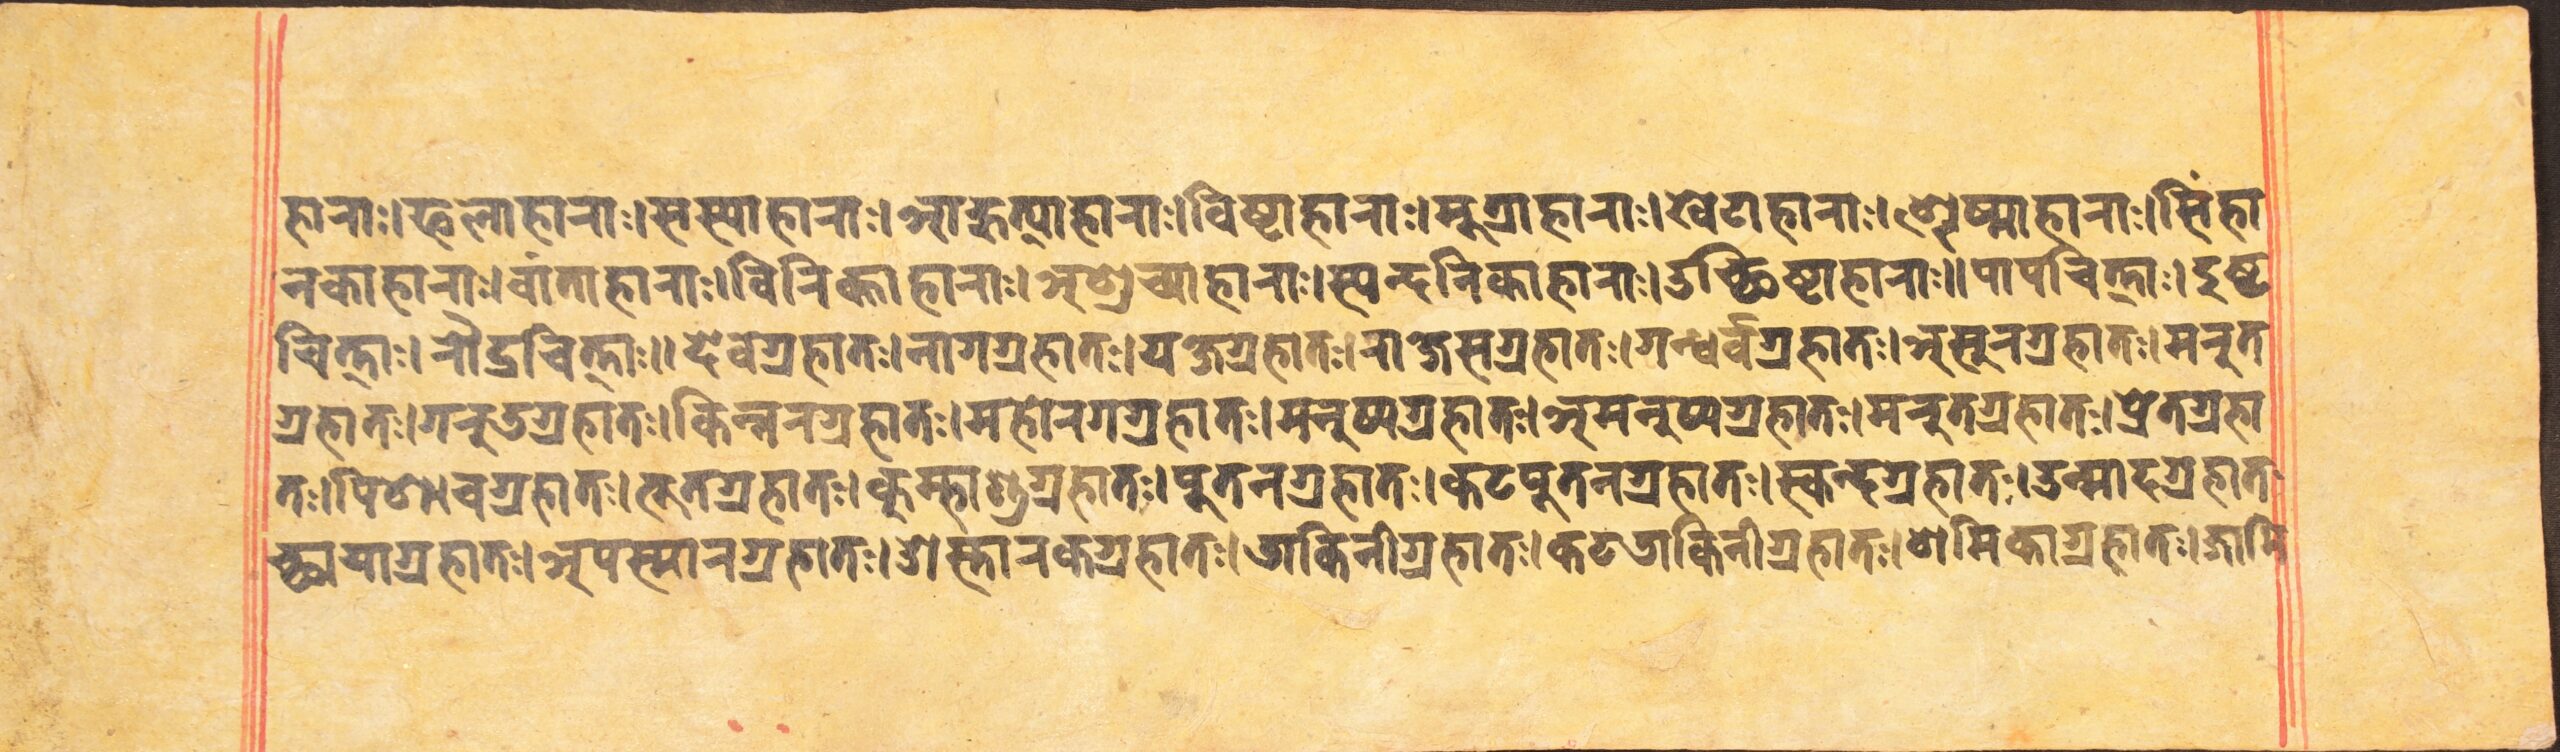 हाराः।फलाहाराः।सस्याहाराः।आहुत्याहाराः।विष्टाहाराः।मुत्राहाराः।खेटाहाराः।श्लेष्माहाराः।सिंहा
नकाहाराः।वांताहाराः।विरिक्ताहाराः।अशुच्याहाराः।स्यन्दनिकाहाराः।उच्छिष्टाहाराः॥पापचित्ताः।दुष्ट
चित्ताः।रौद्रचित्ताः॥देवग्रहातः।नागग्रहातः।यक्षग्रहातः।राक्षसग्रहातः।गन्धर्वग्रहातः।असुरग्रहातः।मरुत
ग्रहातः।गरुडग्रहातः।किन्नरग्रहातः।महोरगग्रहातः।मनुष्यग्रहातः।अमनुष्यग्रहातः।मरुतग्रहातः।प्रेतग्रहा
तः।पिशाचग्रहातः।भूतग्रहातः।कुम्भाण्डग्रहातः।पुतनग्रहातः।कटपुतनग्रहातः।स्कन्दग्रहातः।उन्मादग्रहातः
च्छायाग्रहातः।अपस्मारग्रहातः।ओस्तारकग्रहातः।डाकिनीग्रहातः।कटडाकिनीग्रहातः।शमिकाग्रहातः।जामि